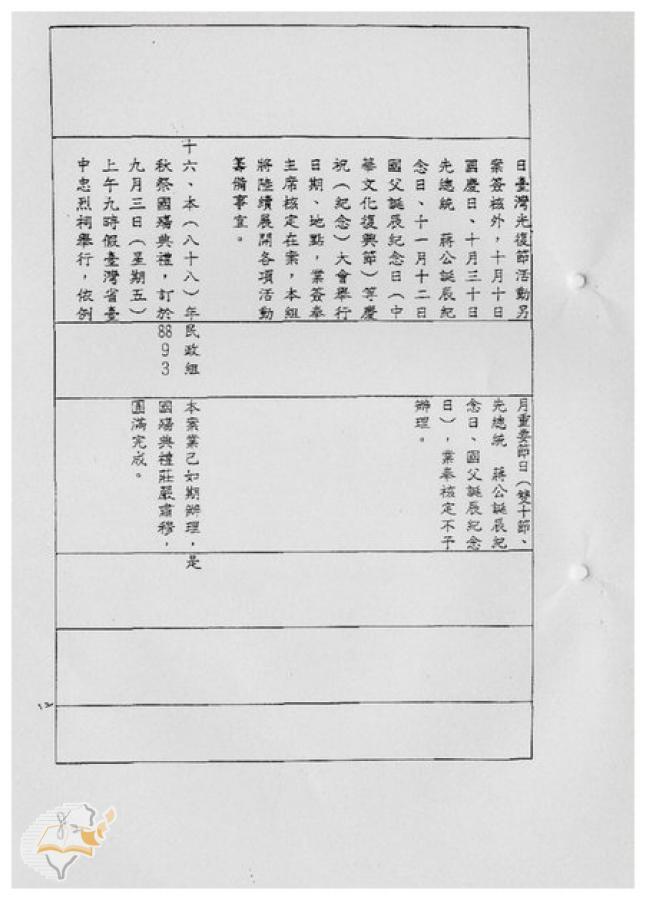 日臺灣光復節活動另
案簽核外，十月十日
國慶日、十月三十日
先總統　蔣公誕辰紀
念日、十一月十二日
國父誕辰紀念日（中
華文化復興節）等慶
祝（紀念）大會舉行
日期、地點，業簽奉
主席核定在案，本組
將陸續展開各項活動
籌備事宜。
十六、本（八十八）年
秋祭國殤典禮，訂於
九月三日（星期五）
上午九時假臺灣省臺
中忠烈祠舉行，依例
民政組
88 9 3
月重要節日（雙十節、
先總統　蔣公誕辰紀
念日、國父誕辰紀念
日），業奉核定不予
辦理。
本案業已如期辦理，是
國殤典禮莊嚴肅穆，
圓滿完成。
12